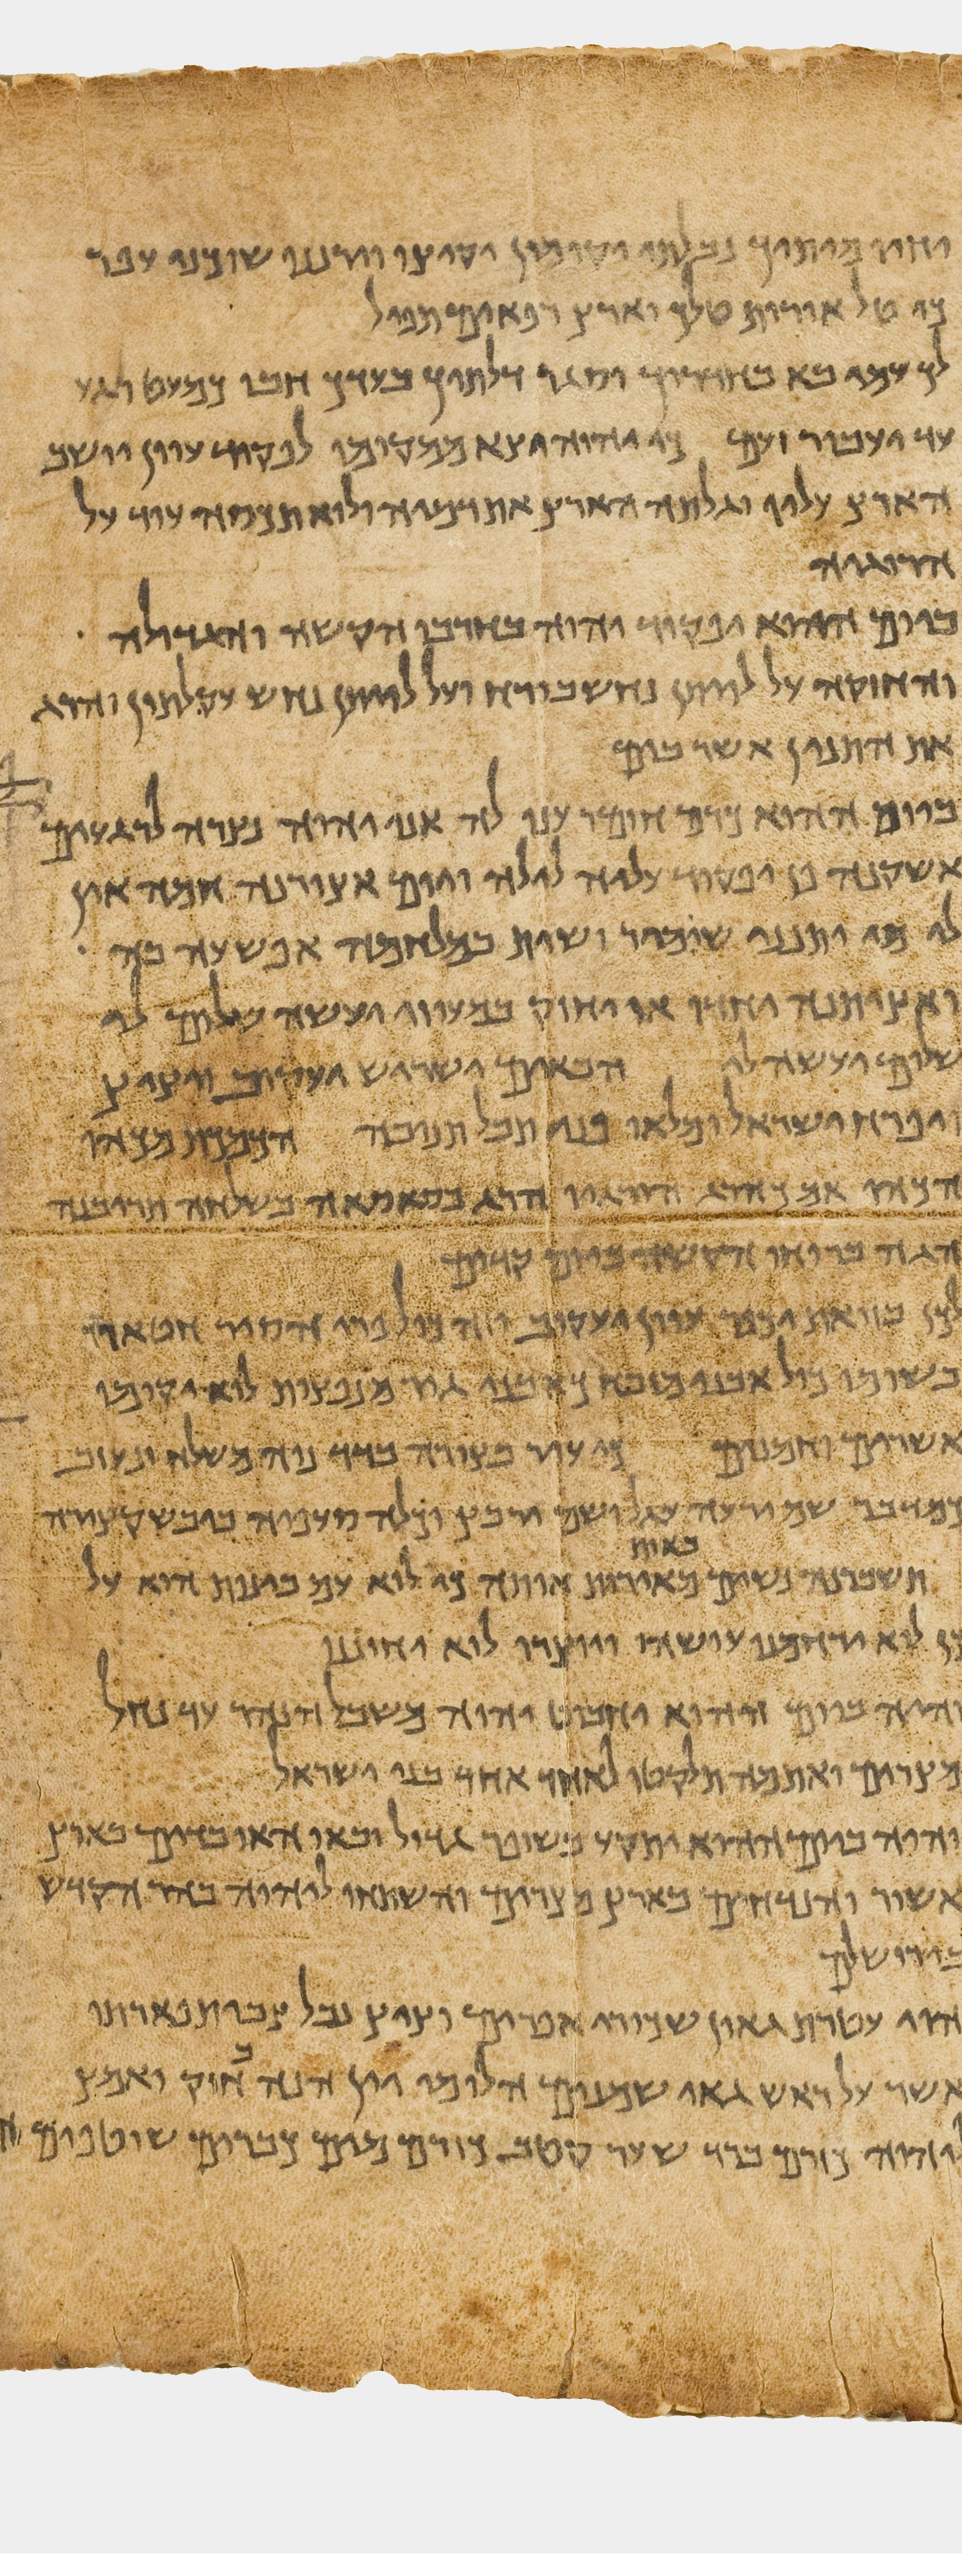 יחיו מיתיך נבלתי יקומון יקיצו וירננו שוכני עפר
כי טל אורות טלך וארץ רפאים תפיל
לך עמי בא בחדריך וסגר דלתיך בעדך חבי כמעט רגע
עד יעבור זעם כי יהוה יצא ממקומו לפקוד עוון יושב
הארץ עליו וגלתה הארץ את דמיה ולוא תכסה עוד על
הרוגיה
ביום ההוא יפקוד יהוה בחרבו הקשה והגדולה
והחזקה על לויתן נחש בורח ועל לויתן נחש עקלתון והרג
את התנין אשר בים
ביום ההוא כרם חומר ענו לה אני יהוה נצרה לרגעים
אשקנה פן יפקוד עליה לילה ויום אצורנה חמה אין
לי מי יתנני שומיר ושית במלחמה אפשעה בה
ואציתנה יחד או יחזק במעוזי יעשה שלום לי
שלום יעשה לי הבאים ישריש יעקוב ויציץ
ופרח ישראל ומלאו פני תבל תנובה הכמכת מכהו
הכהו אם כהרג הורגיו הרג בסאסאה בשלחה תריבנה
הגה ברוחו הקשה ביום קדים
לכן בזאת יכפר עוון יעקוב וזה כול פרי הסיר חטאתו
בשומו כול אבני מזבח כאבני גיר מנפצות לוא יקומו
אשרים וחמנים כי עיר בצורה בדד נוה משלח ונעזב
כמדבר שם ירעה עגל ושם ירבץ וכלה סעפיה ביבש קצירה
באות
תשברנה נשים מאירות אותה כי לוא עם בינות הוא על
כן לוא ירחמנו עושהו ויוצרו לוא יחוננו
והיה ביום ההוא יחבוט יהוה משבל הנהר עד נחל
מצרים ואתמה תלקטו לאחד אחד בני ישראל
והיה ביום ההוא יתקע בשופר גדול ובאו האובדים בארץ
אשור והנדחים בארץ מצרים והשתחוו ליהוה בהר הקדש
בירושלים
הוי עטרת גאון שכורי אפרים וציץ נבל צבי תפארתו
אשר על ראש גאי שמנים הלומי יין הנה חזק ואמץ
ליהוה כזרם ברד שער קטב כזרם מים כבירים שוטפים